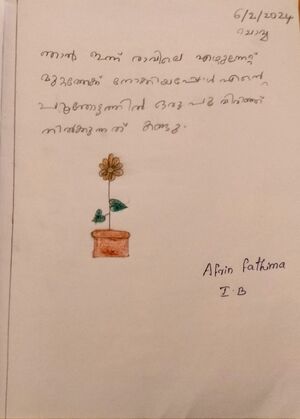 6/2/2024
ചൊവ്വ
ഞാൻ ഇന്ന് രാവിലെ എഴുന്നേറ്റ്
മുറ്റത്തേക്ക് നോക്കിയപ്പോൾ എന്റെ
പൂന്തോട്ടത്തിൽ ഒരു പൂ വിരിഞ്ഞ്
നിൽക്കുന്നത് കണ്ടു.
Afrin fathima
I.B